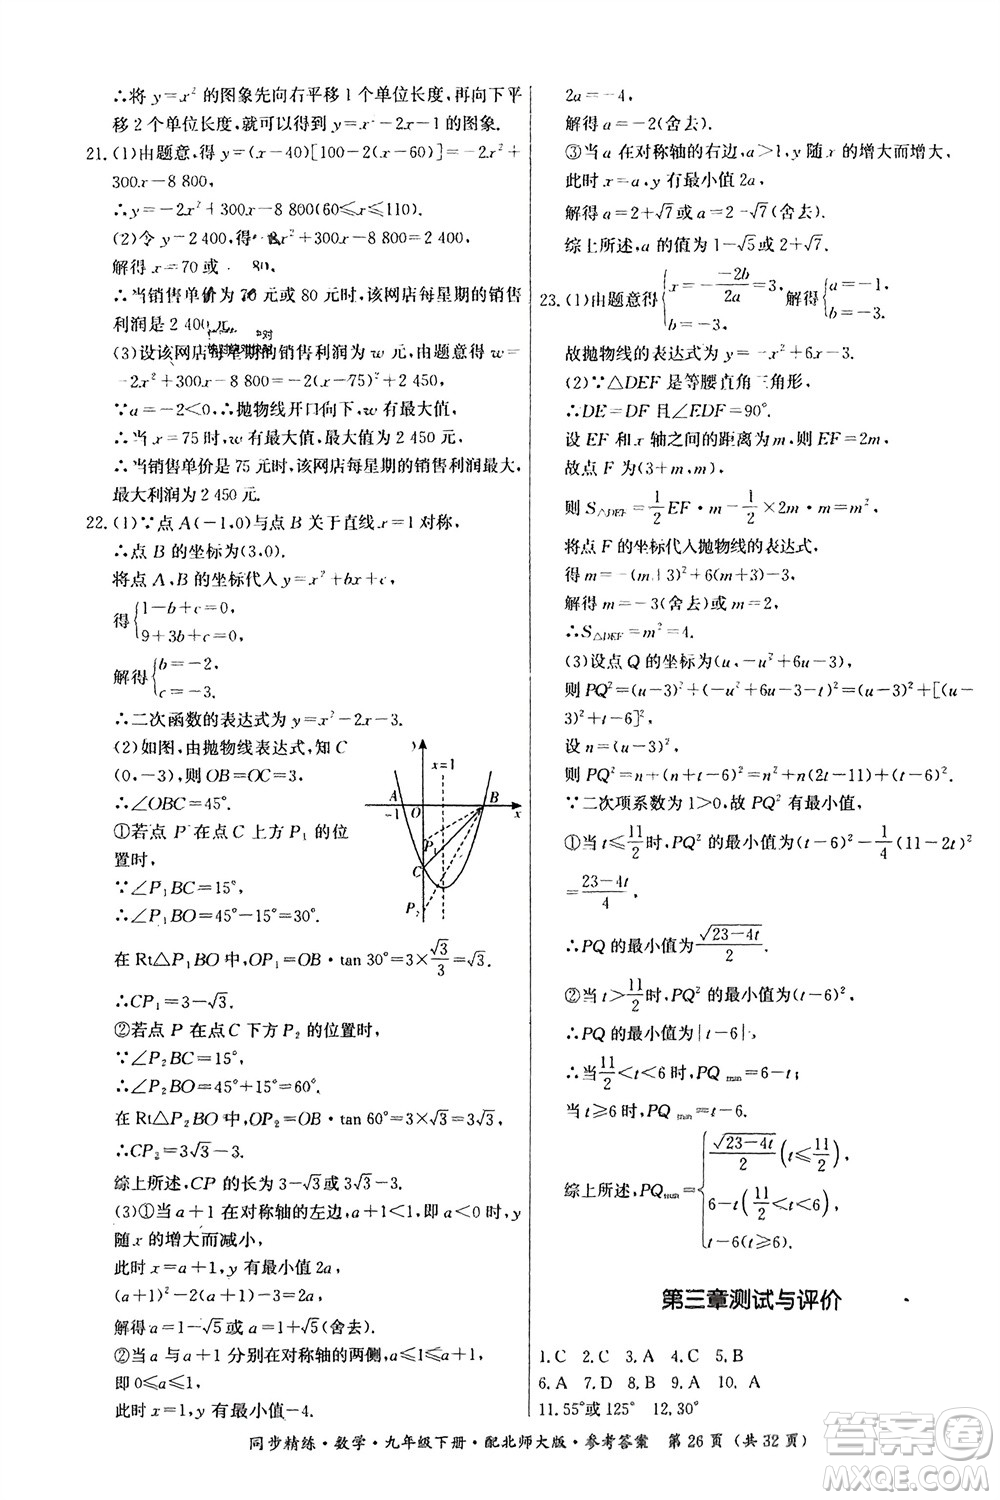 ∴将 y=x² 的图象先向右平移 1 个单位长度,再向下平
移 2 个单位长度,就可以得到 y=x²-2x-1 的图象.
21.(1)由题意,得 y=(x-40)[100-2(x-60)]=-2x²+
300x-8 800,
∴y=-2x²+300x-8 800(60≤x≤110).
(2)令 y=2 400,得 x²+300x-8 800=2 400,
解得 x=70 或 80,
∴当销售单价为 70 元或 80 元时,该网店每星期的销售
利润是 2 400 元.
(3)设该网店每星期的销售利润为 w 元,由题意得 w=
-2x²+300x-8 800=-2(x-75)²+2 450,
∵a=-2<0,∴抛物线开口向下,w 有最大值,
∴当 x=75 时,w 有最大值,最大值为 2 450.
∴当销售单价是 75 元时,该网店每星期的销售利润最大,
最大利润为 2 450 元.
22.(1)∵点 A(-1,0)与点 B 关于直线 x=1 对称,
∴点 B 的坐标为(3,0).
将点 A,B 的坐标代入 y=x²+bx+c,
得{1-b+c=0,
9+3b+c=0,
解得{b=-2,
c=-3.
∴二次函数的表达式为 y=x²-2x-3.
(2)如图,由抛物线表达式,知 C
(0,-3),则 OB=OC=3,
∴∠OBC=45°.
①若点 P 在点 C 上方 P₁ 的位
置时,
∵∠P₁BC=15°,
∴∠P₁BO=45°-15°=30°.
在 Rt△P₁BO 中,OP₁=OB·tan 30°=3×√3/3=√3.
∴CP₁=3-√3.
②若点 P 在点 C 下方 P₂ 的位置时,
∵∠P₂BC=15°,
∴∠P₂BO=45°+15°=60°.
在 Rt△P₂BO 中,OP₂=OB·tan 60°=3×√3=3√3,
∴CP₂=3√3-3.
综上所述,CP 的长为 3-√3或 3√3-3.
(3)①当 a+1 在对称轴的左边,a+1<1,即 a<0 时,y
随 x 的增大而减小,
此时 x=a+1,y 有最小值 2a,
(a+1)²-2(a+1)-3=2a,
解得 a=1-√5或 a=1+√5(舍去).
②当 a 与 a+1 分别在对称轴的两侧,a≤1≤a+1,
即 0≤a≤1 时,
此时 x=1,y 有最小值-4.
x=1
A
O
B
-1
x
P₁
C
P₂
2a=-4,
解得 a=-2(舍去).
③当 a 在对称轴的右边,a>1,y 随 x 的增大而增大,
此时 x=a,y 有最小值 2a,
解得 a=2+√7或 a=2-√7(舍去).
综上所述,a 的值为 1-√5或 2+√7.
23.(1)由题意得{x=-(-2b)/2a=3, 解得{a=-1,
b=-3, b=-3.
故抛物线的表达式为 y=-x²+6x-3.
(2)∵△DEF 是等腰直角三角形,
∴DE=DF 且∠EDF=90°.
设 EF 和 x 轴之间的距离为 m,则 EF=2m,
故点 F 为(3+m,m),
则 S△DEF=1/2EF·m=1/2×m×2m=m²,
将点 F 的坐标代入抛物线的表达式,
得 m=-(m+3)²+6(m+3)-3,
解得 m=-3(舍去)或 m=2,
∴S△DEF=m²=4.
(3)设点 Q 的坐标为(u,-u²+6u-3),
则 PQ²=(u-3)²+(-u²+6u-3-t)²=(u-3)²+[(u-
3)²+t-6]²,
设 n=(u-3)²,
则 PQ²=n+(n+t-6)²=n²+n(2t-11)+(t-6)²,
∵二次项系数为 1>0,故 PQ² 有最小值,
①当 t≤11/2时,PQ² 的最小值为(t-6)²-1/4(11-2t)²
=(23-4t)/4,
∴PQ 的最小值为√(23-4t)/2.
②当 t>11/2时,PQ² 的最小值为(t-6)²,
∴PQ 的最小值为|t-6|,
∴当11/2<t<6 时,PQ min=6-t;
当 t≥6 时,PQ min=t-6.
综上所述,PQmin={√(23-4t)/2(t≤11/2)
6-t(11/2<t<6)
t-6(t≥6)
第三章测试与评价
1.C 2.C 3.A 4.C 5.B
6.A 7.D 8.B 9.A 10.A
11.55°或 125° 12.30°
同步精练·数学·九年级下册·配北师大版·参考答案 第 26 页 (共 32 页)
答案圈
MXQE.COM